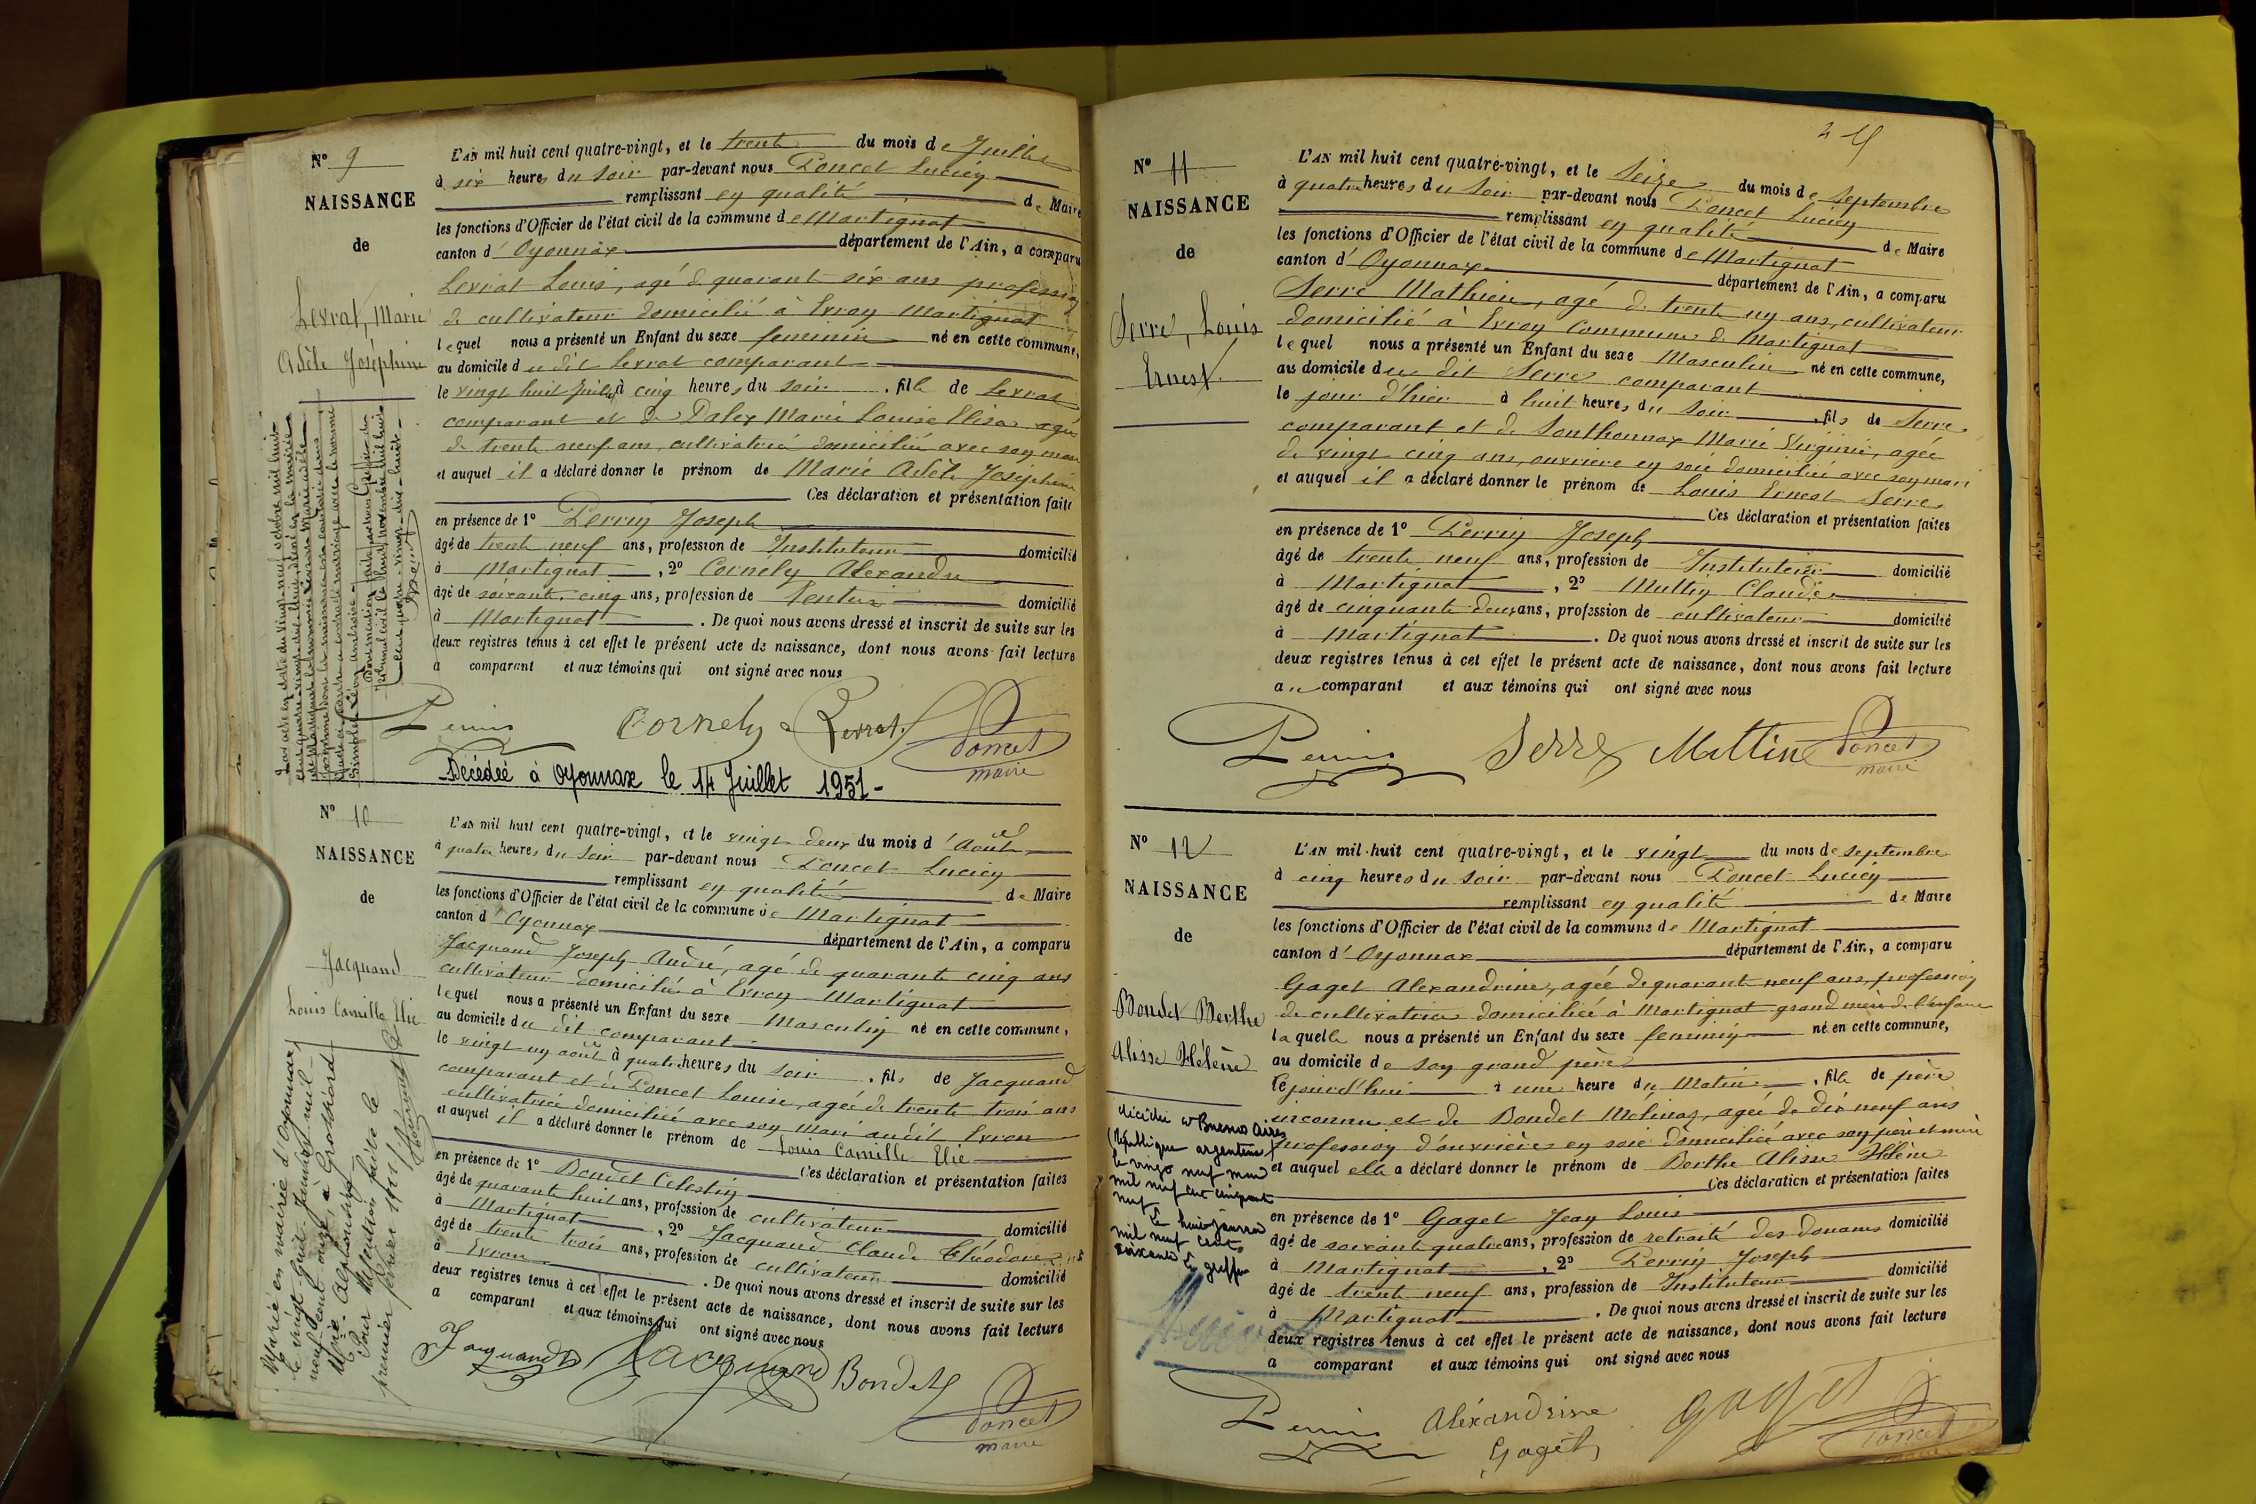 Nº 9
NAISSANCE
de
Levrat, Marie
Adèle Joséphine
L'AN mil huit cent quatre-vingt, et le trente du mois de Juillet
à six heures du soir par-devant nous Poncet Lucien
remplissant en qualité de Maire
les fonctions d'Officier de l'état civil de la commune de Martignat
canton d'Oyonnax département de l'Ain, a comparu
Levrat Louis, agé de quarante six ans profession
de cultivateur domicilié à Evron Martignat
lequel nous a présenté un Enfant du sexe feminin né en cette commune,
au domicile du dit Levrat comparant
le vingt huit Juillet à cinq heures du soir, fille de Levrat
comparant et de Daley Marie Louise Elisa agée
de trente neuf ans, cultivatrice domiciliée avec son mari
et auquel il a déclaré donner le prénom de Marie Adèle Joséphine
Ces déclaration et présentation faites
en présence de 1º Perrin Joseph
âgé de trente neuf ans, profession de Instituteur domicilié
à Martignat, 2º Cornely Alexandre
âgé de soixante cinq ans, profession de Rentier domicilié
à Martignat. De quoi nous avons dressé et inscrit de suite sur les
deux registres tenus à cet effet le présent acte de naissance, dont nous avons fait lecture
à comparant et aux témoins qui ont signé avec nous
Perrin Cornely Levrat Poncet
maire
Décédée à Oyonnax le 14 Juillet 1951 -
Nº 10
NAISSANCE
de
Jacquand
Louis Camille Elie
Marié en mairie d'Oyonnax
le vingt Janvier mil
neuf cent onze, à
Pour Mention faite le
premier février 1911
L'AN mil huit cent quatre-vingt, et le vingt deux du mois d'Août
à quatre heures du soir par-devant nous Poncet Lucien
remplissant en qualité de Maire
les fonctions d'Officier de l'état civil de la commune de Martignat
canton d'Oyonnax département de l'Ain, a comparu
Jacquand Joseph André, agé de quarante cinq ans
cultivateur domicilié à Evron Martignat
lequel nous a présenté un Enfant du sexe Masculin né en cette commune,
au domicile du dit comparant
le vingt un août à quatre heures du soir, fils de Jacquand
comparant et de Poncet Louise, agée de trente trois ans
cultivatrice domiciliée avec son Mari audit Evron
et auquel il a déclaré donner le prénom de Louis Camille Elie
Ces déclaration et présentation faites
en présence de 1º Bondet Celestin
âgé de quarante huit ans, profession de cultivateur domicilié
à Martignat, 2º Jacquand Claude Théodore
âgé de trente trois ans, profession de cultivateur domicilié
à Evron. De quoi nous avons dressé et inscrit de suite sur les
deux registres tenus à cet effet le présent acte de naissance, dont nous avons fait lecture
a comparant et aux témoins qui ont signé avec nous
Jaquand Jacquand Bondet
Poncet
maire
Nº 11
NAISSANCE
de
Serre, Louis
Ernest
L'AN mil huit cent quatre-vingt, et le Seize du mois de Septembre
à quatre heures du Soir par-devant nous Poncet Lucien
remplissant en qualité de Maire
les fonctions d'Officier de l'état civil de la commune de Martignat
canton d'Oyonnax département de l'Ain, a comparu
Serre Mathieu, agé de trente un ans, cultivateur
domicilié à Evron Commune de Martignat
lequel nous a présenté un Enfant du sexe Masculin né en cette commune,
au domicile du dit Serre comparant
le jour d'hier à huit heures du Soir, fils de Serre
comparant et de Sonthonnax Marie Virginie, agée
de vingt cinq ans, ouvrière en soie domiciliée avec son mari
et auquel il a déclaré donner le prénom de Louis Ernest Serre
Ces déclaration et présentation faites
en présence de 1º Perrin Joseph
âgé de trente neuf ans, profession de Instituteur domicilié
à Martignat, 2º Multin Claude
âgé de cinquante deux ans, profession de cultivateur domicilié
à Martignat. De quoi nous avons dressé et inscrit de suite sur les
deux registres tenus à cet effet le présent acte de naissance, dont nous avons fait lecture
au comparant et aux témoins qui ont signé avec nous
Perrin Serre Multin Poncet
maire
Nº 12
NAISSANCE
de
Bondet Berthe
Alisse Hélène
décédée à Buenos Aires
(République argentine)
le vingt neuf mai
mil neuf cent cinquante
neuf
Le huit janvier
mil neuf cent
soixante Le greffier
L'AN mil huit cent quatre-vingt, et le vingt du mois de septembre
à cinq heures du soir par-devant nous Poncet Lucien
remplissant en qualité de Maire
les fonctions d'Officier de l'état civil de la commune de Martignat
canton d'Oyonnax département de l'Ain, a comparu
Gaget Alexandrine, agée de quarante neuf ans, profession
de cultivatrice domiciliée à Martignat grand mère de l'enfant
laquelle nous a présenté un Enfant du sexe feminin né en cette commune,
au domicile de son grand père
le jourd'hui à une heure du Matin, fille de père
inconnu et de Bondet Mélina, agée de dix neuf ans
profession d'ouvrière en soie domiciliée avec son père et mère
et auquel elle a déclaré donner le prénom de Berthe Alisse Hélène
Ces déclaration et présentation faites
en présence de 1º Gaget Jean Louis
âgé de soixante quatre ans, profession de retraité des douanes domicilié
à Martignat, 2º Perrin Joseph
âgé de trente neuf ans, profession de Instituteur domicilié
à Martignat. De quoi nous avons dressé et inscrit de suite sur les
deux registres tenus à cet effet le présent acte de naissance, dont nous avons fait lecture
a comparant et aux témoins qui ont signé avec nous
Perrin Aléxandrine Gaget gaget Poncet